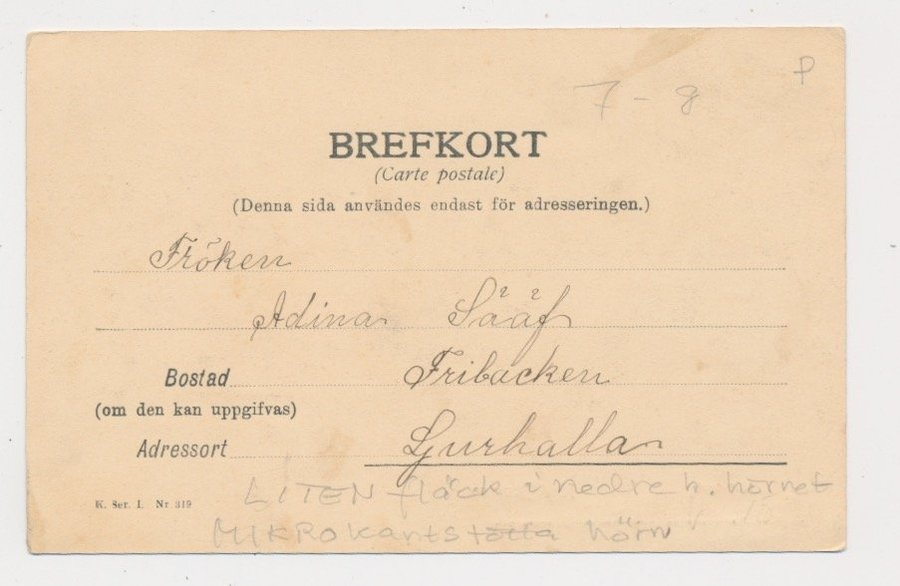 P
7 - 8
BREFKORT
(Carte postale)
(Denna sida användes endast för adresseringen.)
Fröken
Adina Sääf
Bostad Fribacken
(om den kan uppgifvas)
Adressort Ljurhalla
LITEN fläck i nedre h. hörnet
K. Ser. I. Nr 319
MIKROkantstötta hörn